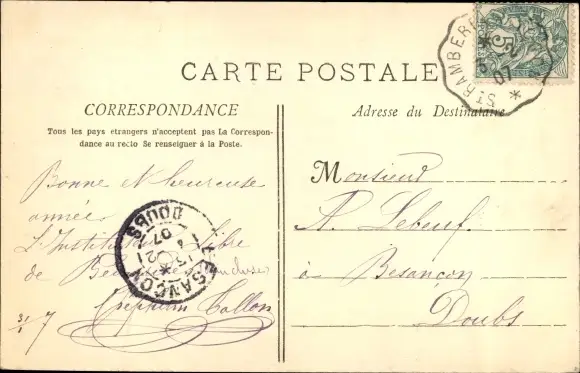 CARTE POSTALE
CORRESPONDANCE
Tous les pays étrangers n'acceptent pas La Correspon-
dance au recto Se renseigner à la Poste.
Bonne et heureuse
année
L'Instituteur Libre
de
31/1 7
BESANÇON
DOUBS
07
Adresse du Destinataire
Monsieur
A. Lebeuf
à Besançon
Doubs
ST RAMBERT
07
5